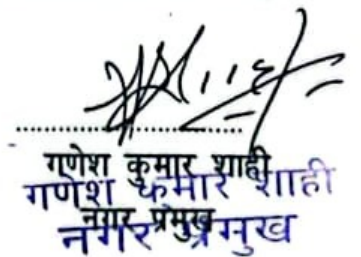 गणेश कुमार शाही
गणेश कुमार शाही
नगर प्रमुख
नगर प्रमुख